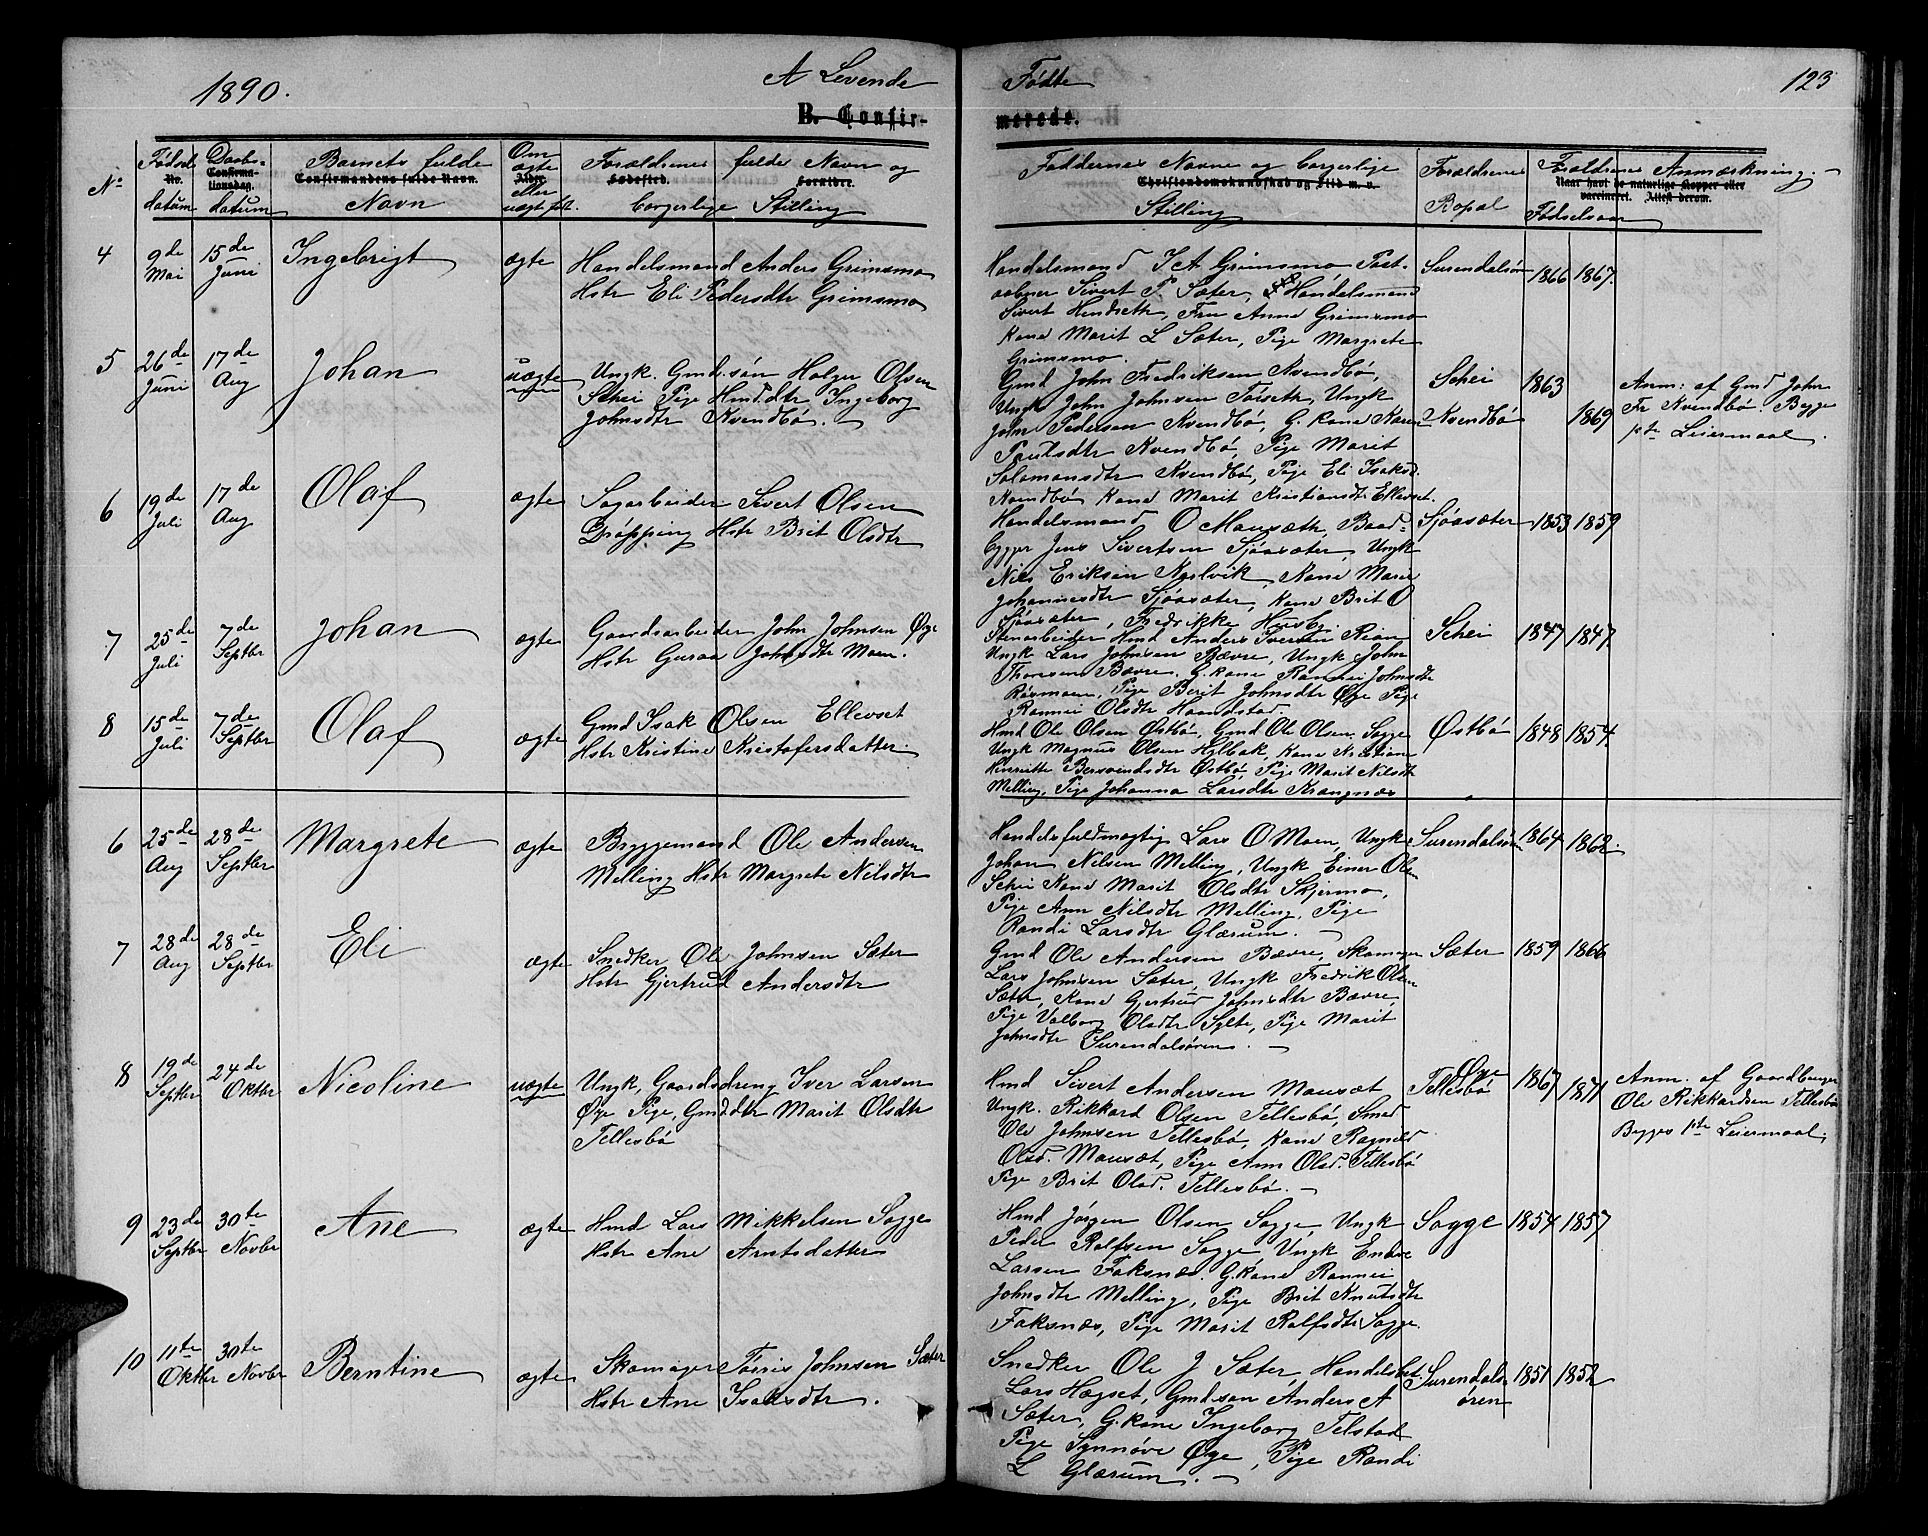 1890.
A Levende Fødte 123
B. Confir- merede.
No
Fødsels
No.
datum
Daabs-
Confirma-
tionsdag.
datum
Barnets fulde
Confirmandens fulde Navn.
Navn
Om
ægte
Alder
eller
uægt fød.
Forældrenes fulde Navn og
Fødested. Forældre.
borgerlige Stilling
Faddernes Navne og borgerlige
Christendomskundskab og Flid m. v.
Stilling
Forældrenes
Bopæl
Forældrenes Anmærkning.
Naar havt de naturlige Kopper eller
vaccineret. Attest derom.
Fødselsaar
4 9de Mai 15de Juni Ingebrigt ægte
Handelsmand Anders Grimsmo
Hstr Eli Pedersdtr Grimsmo
Handelsmand I A Grimsmo Post-
aabner Sivert P Sæter, Handelsmand
Sivert Hendseth, Fru Anne Grimsmo
Kone Marit L Sæter, Pige Margrete
Grimsmo.
Surendalsør 1866 1867.
5 26de Juni 17de Aug Johan uægte
Ungk. Gmd.søn Holger Olsen
Schei Pige Hmd.dtr Ingeborg
Johnsdtr Kvendbø.
Gmd John Fredriksen Kvendbø,
Ungk John Johnsen Toiseth, Ungk
John Pedersen Kvendbø, G.kone Karen
Paulsdtr Kvendbø, Pige Marit
Salomonsdtr Kvendbø, Pige Eli Isaksd.
Kvendbø Kone Marit Kristiansdt. Ellevset.
Schei 1863
Kvendbø 1869
Anm: af Gmd John
Fr Kvendbø. Begge
1ste Leiermaal.
6 19de Juli 17de Aug Olaf ægte
Sagarbeider Sivert Olsen
Drøpping Hstr Brit Olsdtr
Handelsmand O Mauseth, Baad-
bygger Jens Sivertsen Sjøasæter, Ungk
Nils Eriksen Naslvik, Kone Marie
Johannesdtr Sjøasæter, Kone Brit O
Sjøasæter, Fredrikke Husby.
Sjøasæter 1853 1859
7 25de Juli 7de Septbr Johan ægte
Gaardsarbeider John Johnsen Øye
Hstr Guraa Johnsdtr Moen.
Stenarbeider Hmd Anders Iversen Rian
Ungk Lars Johnsen Bævre, Ungk John
Thoresen Bævre, G.kone Rannei Johnsdtr
Røsmoen, Pige Berit Johnsdtr Øye Pige
Rannei Olsdtr Haandstad
Schei 1847 1847.
8 15de Juli 7de Septbr Olaf ægte
Gmd Isak Olsen Ellevset
Hstr Kristine Kristofersdatter.
Hmd Ole Olsen Østbø, Gmd Ole Olsen Sogge
Ungk Magnus Olsen Hilbak, Kone Kristiane
Henriette Bersvendsdtr Østbø, Pige Marit Nilsdtr
Melling, Pige Johanna Larsdtr Krangnæs
Østbø 1848 1854.
6 25de Aug 28de Septbr Margrete ægte
Bryggemand Ole Andersen
Melling Hstr Margrete Nilsdtr
Handelsfuldmægtig Lars O Moen, Ungk
Johan Nilsen Melling, Ungk Einer Olsen
Schei Kone Marit Olsdtr Skjermo,
Pige Ann Nilsdtr Melling, Pige
Randi Larsdtr Glærum.
Surendalsøren 1864 1862.
7 28de Aug 28de Septbr Eli ægte
Snedker Ole Johnsen Sæter
Hstr Gjertrud Andersdtr
Gmd Ole Andersen Bævre, Skomager
Lars Johnsen Sæter, Ungk Fredrik Olsen
Sæter, Kone Gjertrud Johnsdtr Bævre,
Pige Valborg Olsdtr Sylte, Pige Marit
Johnsdtr Surendalsøren.
Sæter 1859 1866
8 19de Septbr 24de Oktbr Nicoline uægte
Ungk, Gaardsdreng Iver Larsen
Øye Pige, Gmd.dtr Marit Olsdtr
Tellesbø
Hmd Sivert Andersen Mauset
Ungk. Rikkard Olsen Tellesbø, Smed
Ole Johnsen Tellesbø, Kone Ragnild
Olsd. Mauset, Pige Ann Olsd. Tellesbø
Pige Brit Olsd. Tellesbø.
Øye
Tellesbø 1867 1871
Anm. af Gaardbruger
Ole Rikkardsen Tellesbø
Begges 1ste Leiermaal,
9 23de Septbr 30te Novbr Ane ægte
Hmd Lars Mikkelsen Sogge
Hstr Ane Arntsdatter
Hmd Jørgen Olsen Sogge Ungk
Peder Rolfsen Sogge Ungk Endre
Larsen Foksnæs. G.kone Rannei
Johnsdtr Melling, Pige Brit Knutsdtr
Foksnæs, Pige Marit Rolfsdtr Sogge.
Sogge 1854 1857
10 11te Oktbr 30te Novbr Berntine ægte
Skomager Tørris Johnsen Sæter
Hstr Ane Isaksdtr.
Snedker Ole J Sæter, Handelsbet.
Lars Hagset, Gmd.søn Anders A
Sæter, G.kone Ingeborg Telstad
Pige Synnøve Øye, Pige Randi
L Glærum.
Surendals-
øren 1851 1852